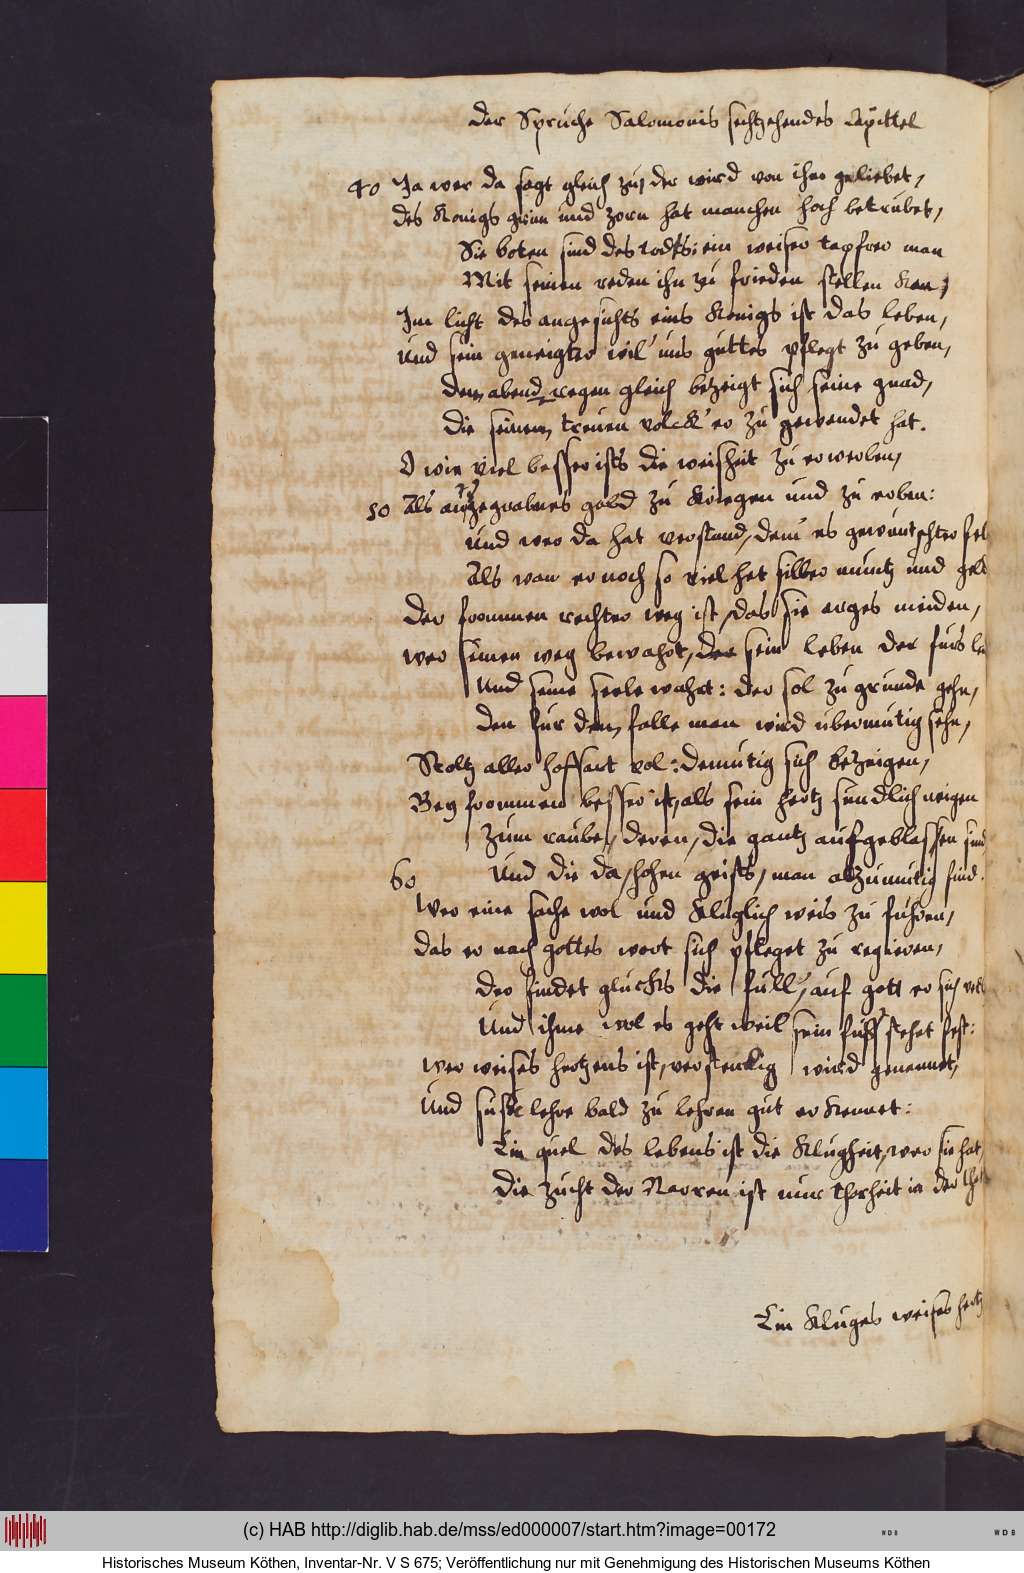 Der Spruche Salomonis sechtzehendes Capittel
40 Ja wer da sagt gleich zu, der wird von ihm geliebet,
des Konigs grim und zorn hat manchen hoch betrubet,
Sie boten sind des todts: ein weiser tapfrer man
Mit seinen reden ihn zu frieden stellen kan,
Im licht des angesichts eins Konigs ist das leben,
Und sein geneigter wil' uns guttes pflegt zu geben,
dem abend regen gleich bezeigt sich seine gnad,
die seinem treuen volck' er zu gewendet hat.
O wie viel besser ists die weisheit zu erwerben,
50 Als ausgegrabnes gold zu kriegen und zu erben:
und wer da hat verstand, dem es gewunschter fel
Als wan er noch so viel het silber muntz und geld
Der frommen rechter weg ist, das sie arges meiden,
wer seinen weg bewahrt, der sein leben der furs
Und seine seele wahrt: der sol zu grunde gehn,
den fur dem falle man wird ubermutig sehn,
Stoltz aller hoffart vol: demutig sich bezeigen,
Bey frommen besser ist, als sein hertz sundlich neigen
Zum raube, deren, die gantz aufgeblassen sind
60 Und die da hohen geists, man alzumutig find.
Wer eine sache wol und kluglich weis zu fuhren,
das er nach gottes wort sich pfleget zu regieren,
der findet glucks die full', auf gott er sich
Und ihme wol es geht weil sein fuss stehet fest:
wer weises hertzens ist, verstendig wird genennet,
Und susse lehre bald zu lehren gut erkennet:
Ein quel des lebens ist die klugheit, wer sie hat,
die zucht der Narren ist nur thorheit in der
Ein kluges weises hertz
(c) HAB http://diglib.hab.de/mss/ed000007/start.htm?image=00172
WDB
WDB
Historisches Museum Köthen, Inventar-Nr. V S 675; Veröffentlichung nur mit Genehmigung des Historischen Museums Köthen